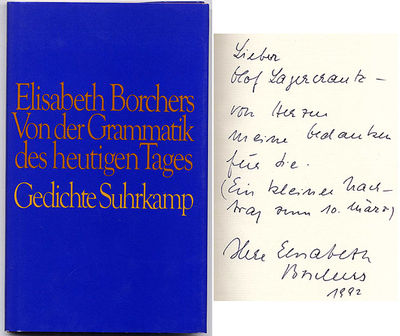 Elisabeth Borchers
Von der Grammatik
des heutigen Tages
Gedichte Suhrkamp
Lieber
Olof Lagercrantz –
von Herzen
meine Gedanken
für Sie.
(Ein kleiner Nach-
trag zum 10. März)
Ihre Elisabeth
Borchers
1992